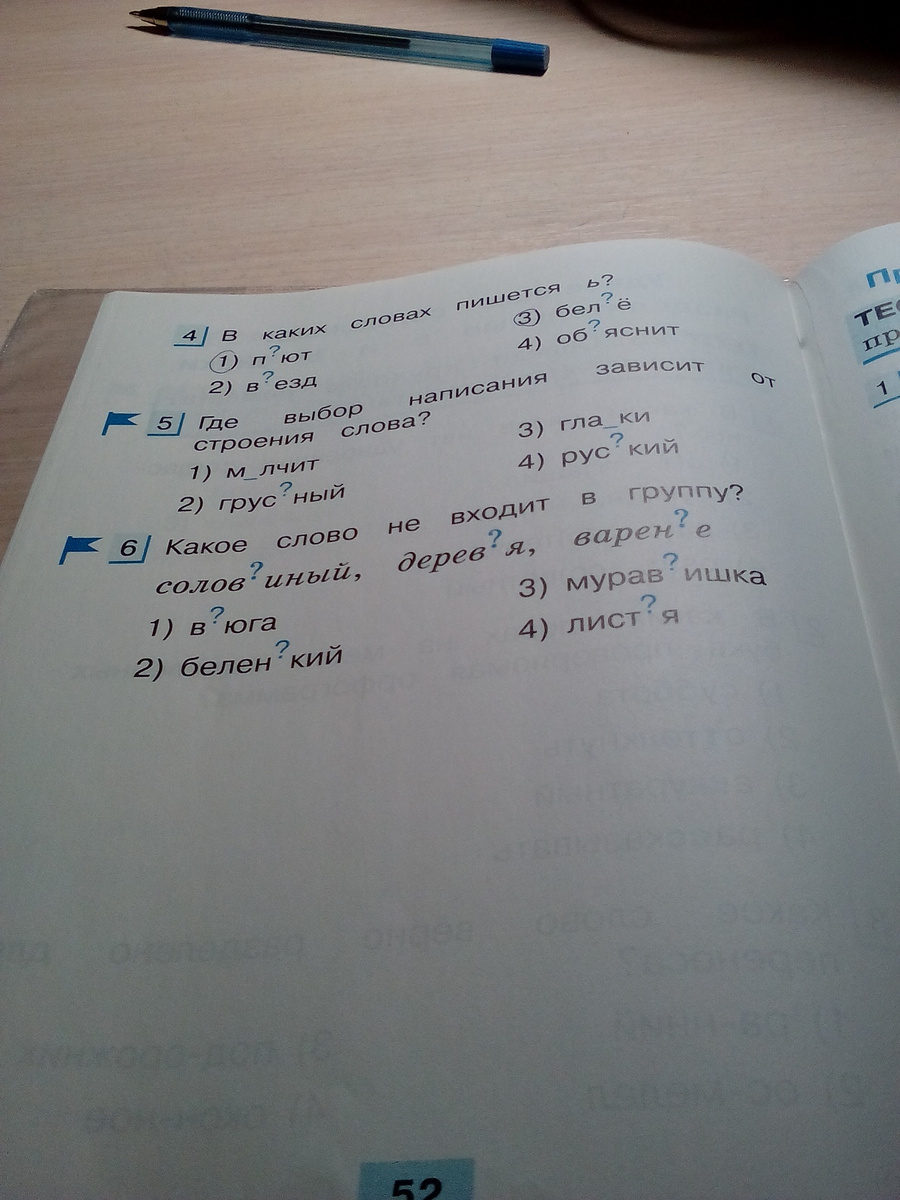 4 В каких словах пишется ь?
1) п?ют
2) в?езд
3) бел?ё
4) об?яснит
5 Где выбор написания зависит от
строения слова?
1) м_лчит
2) грус?ный
3) гла_ки
4) рус?кий
6 Какое слово не входит в группу?
солов?иный, дерев?я, варен?е
1) в?юга
2) белен?кий
3) мурав?ишка
4) лист?я
52
ТЕС
пр
1